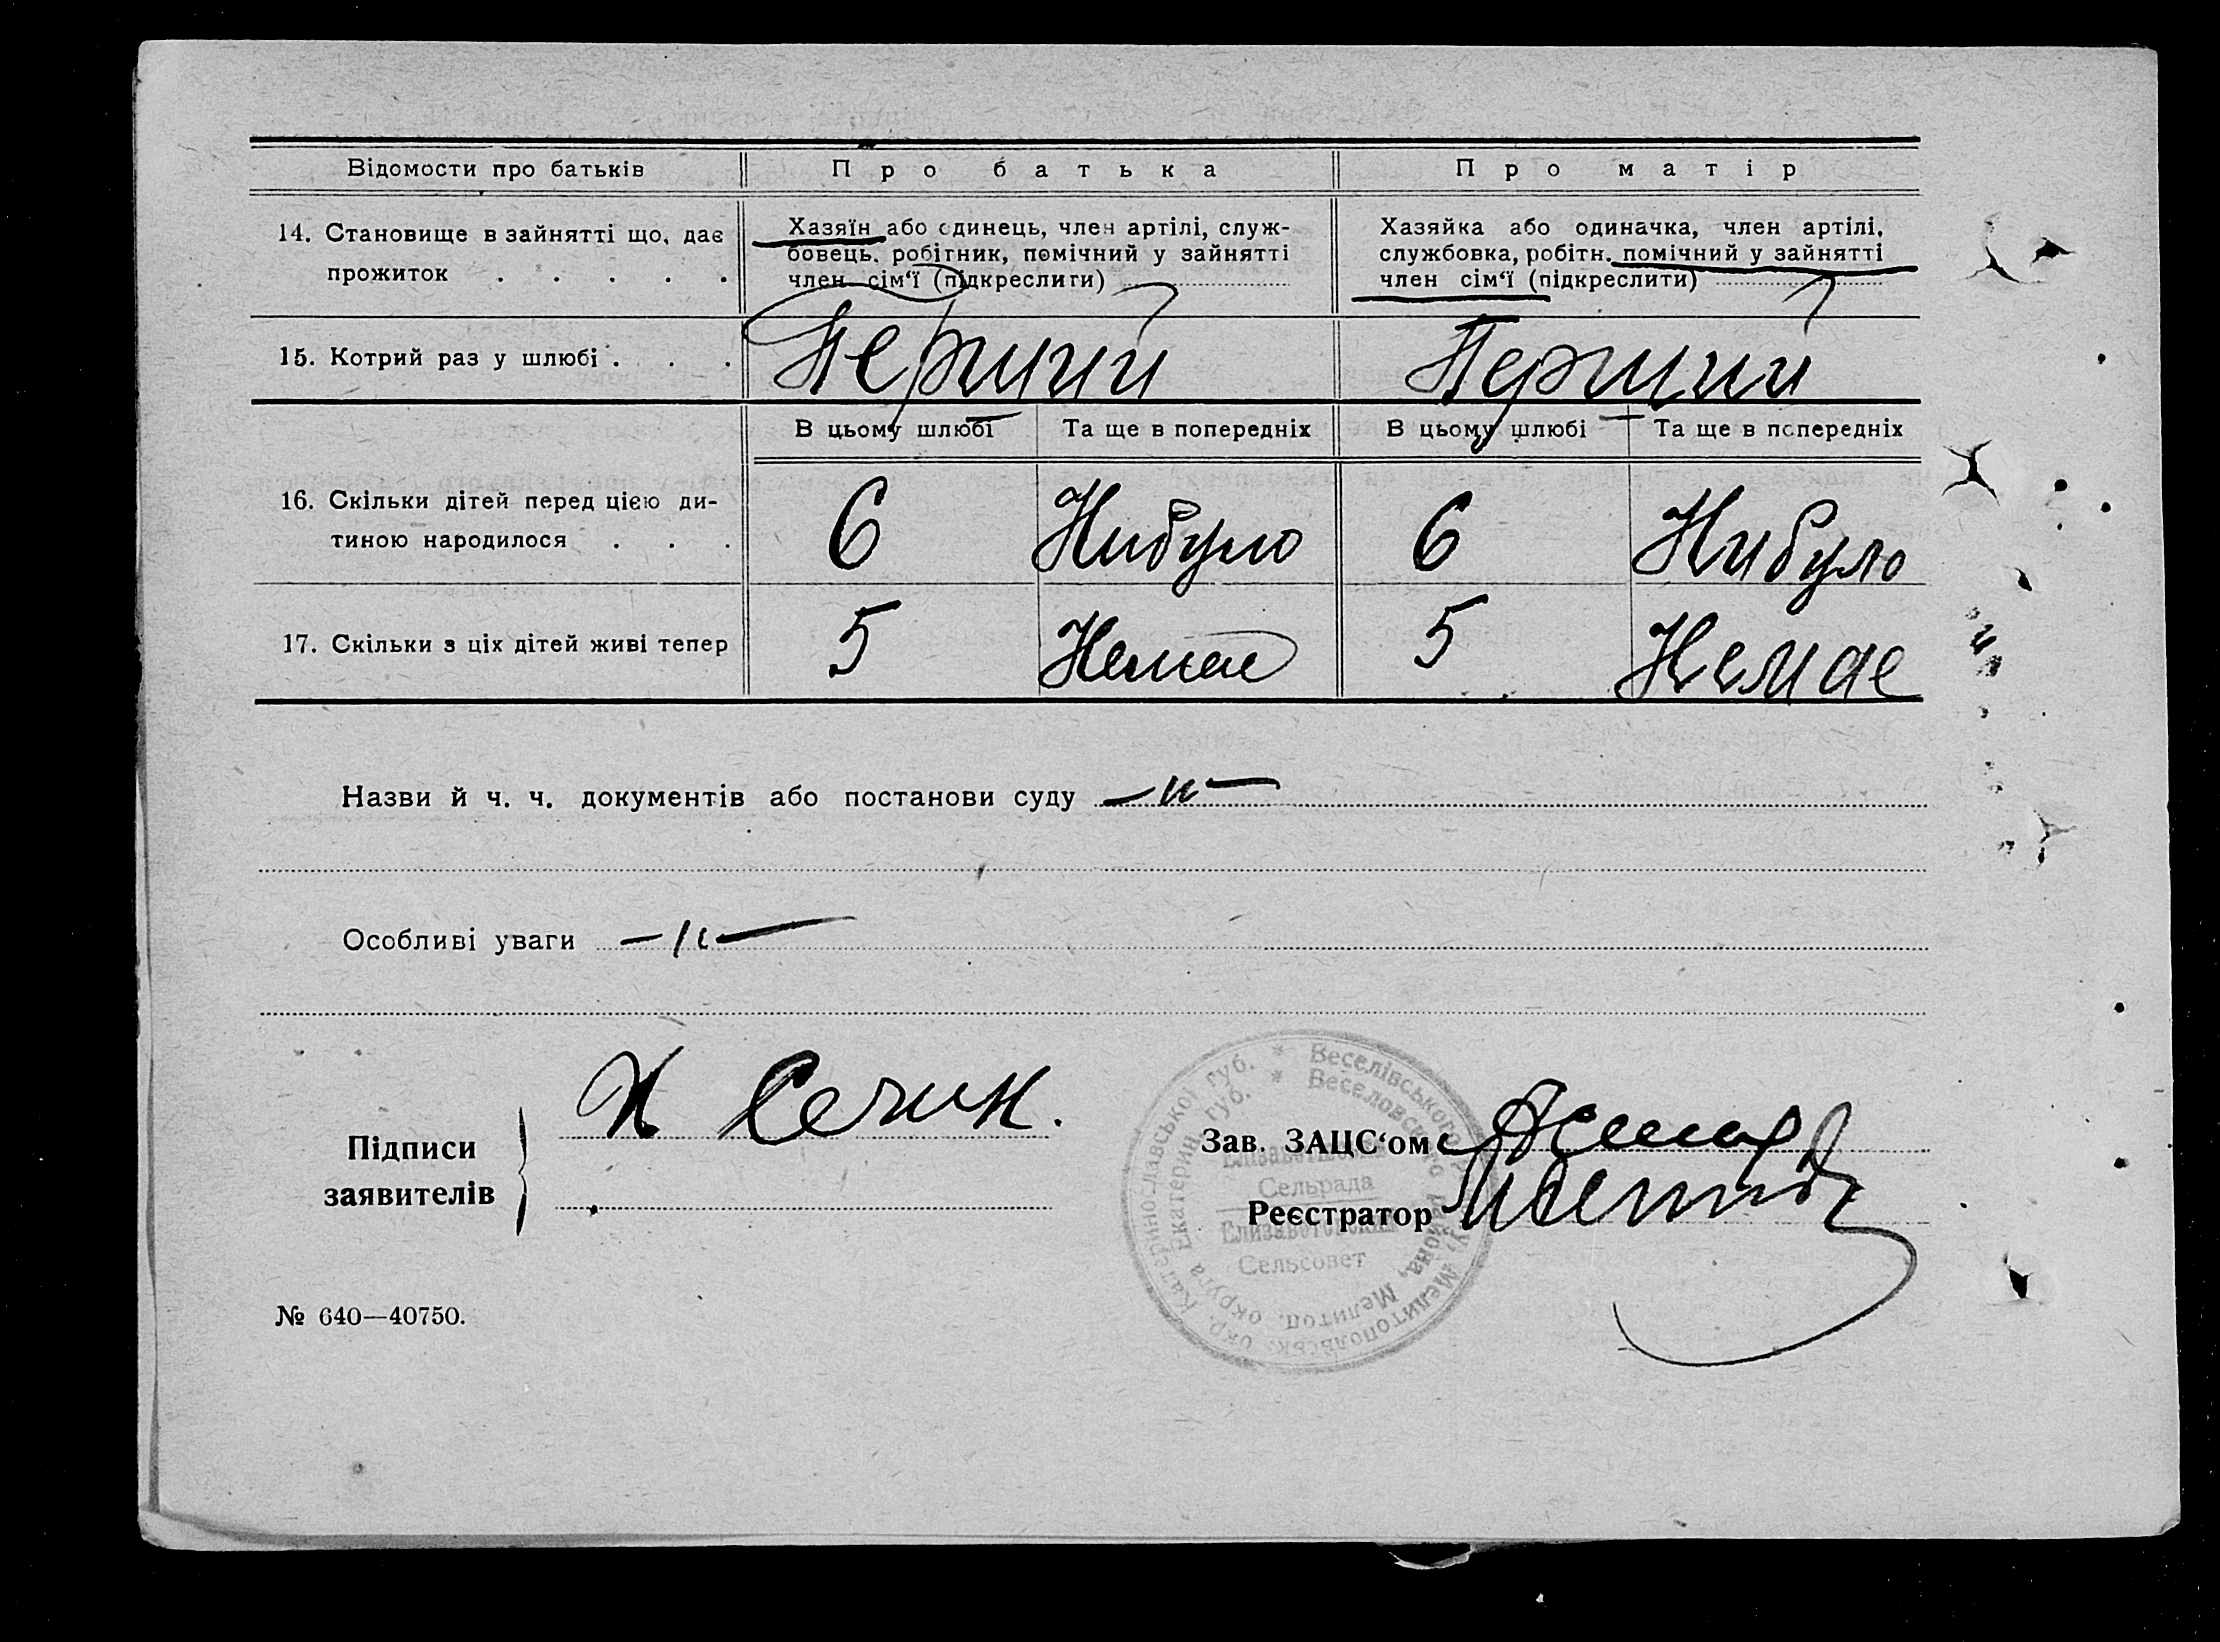 Відомости про батьків
Про батька
Про матір
14. Становище в зайнятті що, дає
прожиток . . . . .
Хазяїн або одинець, член артілі, служ-
бовець, робітник, помічний у зайнятті
член сім‘ї (підкреслити)
Хазяйка або одиначка, член артілі,
службовка, робітн. помічний у зайнятті
член сім‘ї (підкреслити)
15. Котрий раз у шлюбі . . .
Перший
Перший
В цьому шлюбі
Та ще в попередніх
В цьому шлюбі
Та ще в попередніх
16. Скільки дітей перед цією ди-
тиною народилося . . .
6
Нибуло
6
Нибуло
17. Скільки з ціх дітей живі тепер
5
Немае
5
Немае
Назви й ч. ч. документів або постанови суду —"—
Особливі уваги —"—
Підписи
заявителів
Зав. ЗАЦС‘ом
Реєстратор
Катеринославської губ. * Веселівського
Мелитопольськ. окр.
Екатерин. губ. * Веселовского района, Мелитоп. округа
Сельрада
Сельсовет
№ 640—40750.